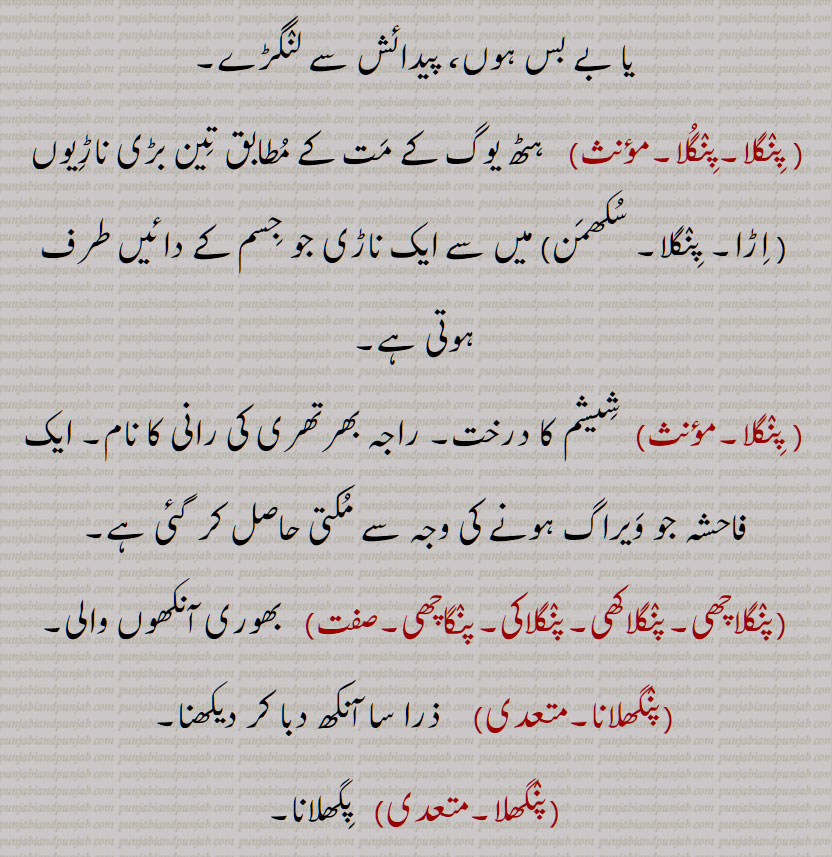 یا بے بس ہوں، پیدائش سے لنگڑے۔
( پِنْگلا۔پِنْگُلا۔مؤنث) ہٹھ یوگ کے مَت کے مُطابق تِین بڑی ناڑِیوں
( اِڑا۔ پِنْگلا۔ سُکھمَن) میں سے ایک ناڑی جو جِسم کے دائیں طرف
ہوتی ہے۔
( پِنْگلا۔مؤنث) شِیشم کا درخت۔ راجہ بھرتھری کی رانی کا نام۔ ایک
فاحشہ جو وَیراگ ہونے کی وجہ سے مُکتی حاصل کر گئی ہے۔
(پِنْگلاچھی۔ پِنْگلاکھی۔ پِنْگلاکی۔ پِنْگاچھی۔صفت) بھوری آنکھوں والی۔
(پِنْگھلانا۔متعدی) ذرا سا آنکھ دبا کر دیکھنا۔
(پِنْگھلا۔متعدی) پِگھلانا۔